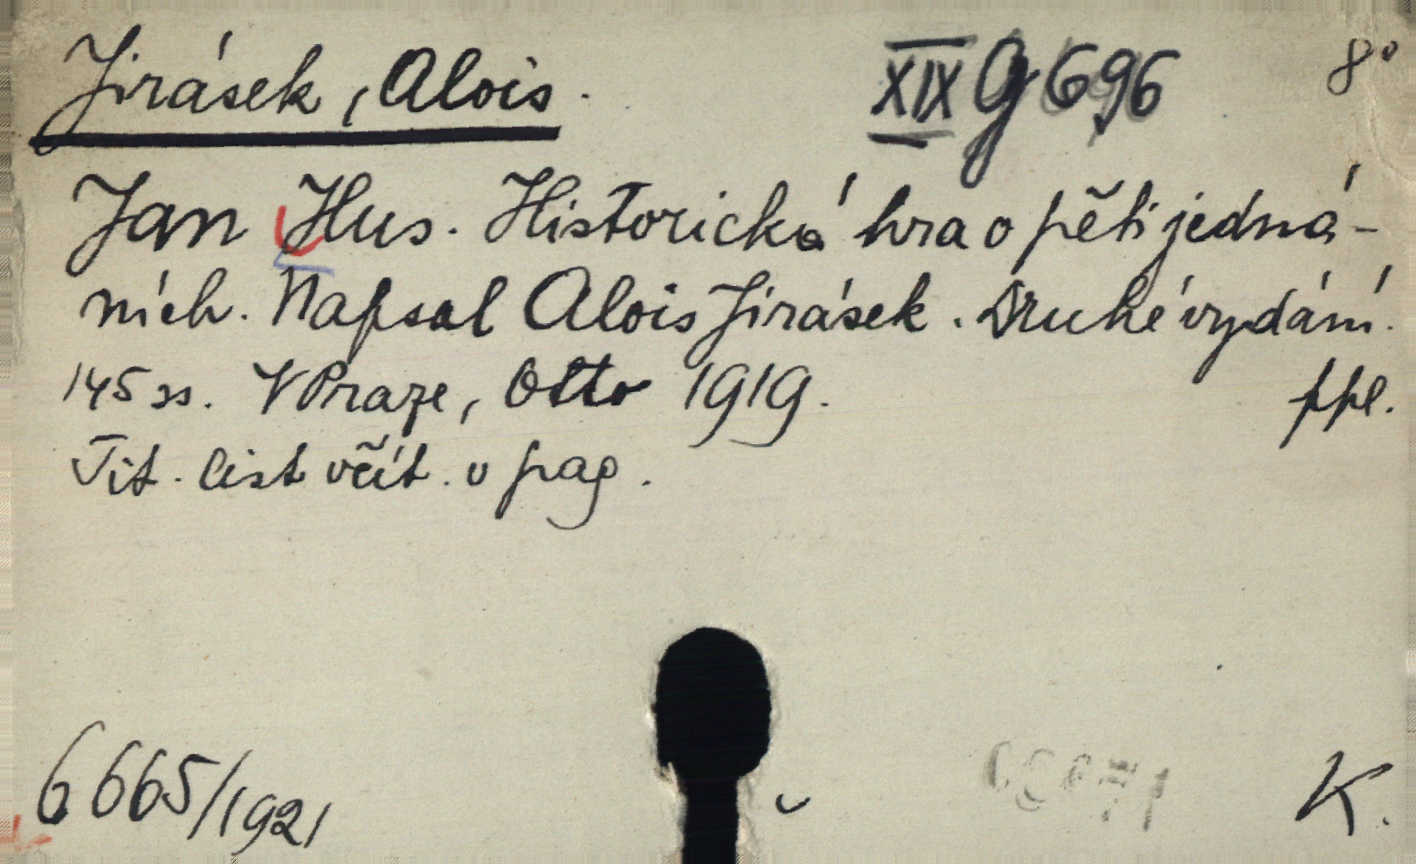 Jirásek, Alois. XIX G 696 8°
Jan Hus. Historická hra o pěti jedná-
ních. Napsal Alois Jirásek. Druhé vydání.
145 ss. V Praze, Otto 1919. ppl.
Tit. list včít. v pag.
6665/1921 K.